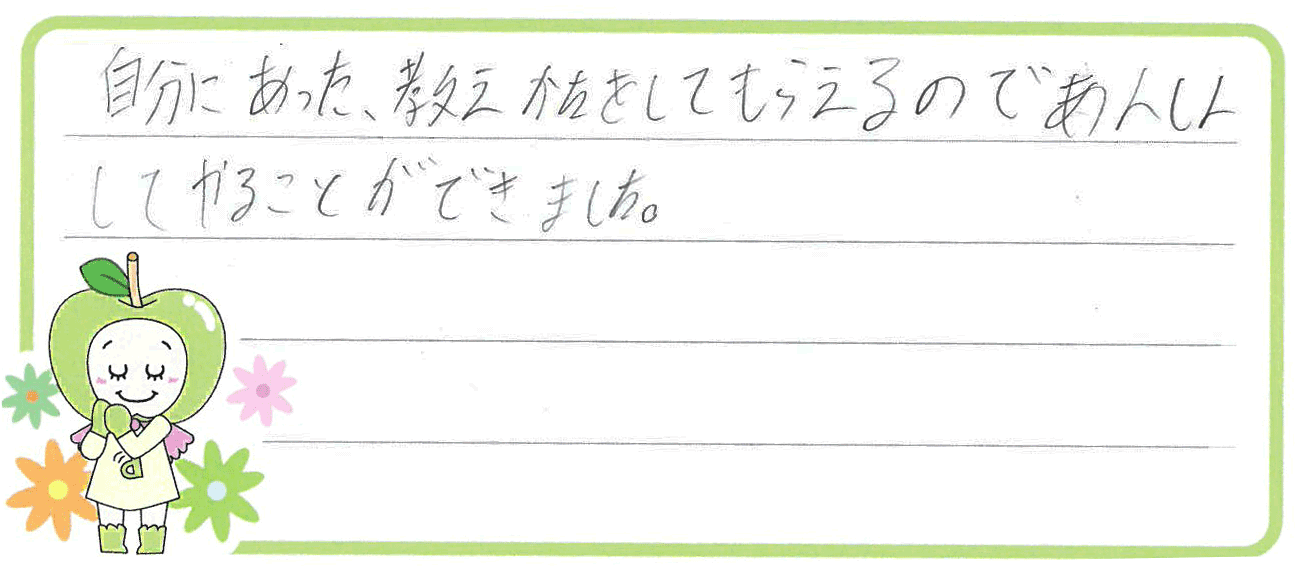 自分にあった、教えかたをしてもらえるのであんしん
してやることができました。